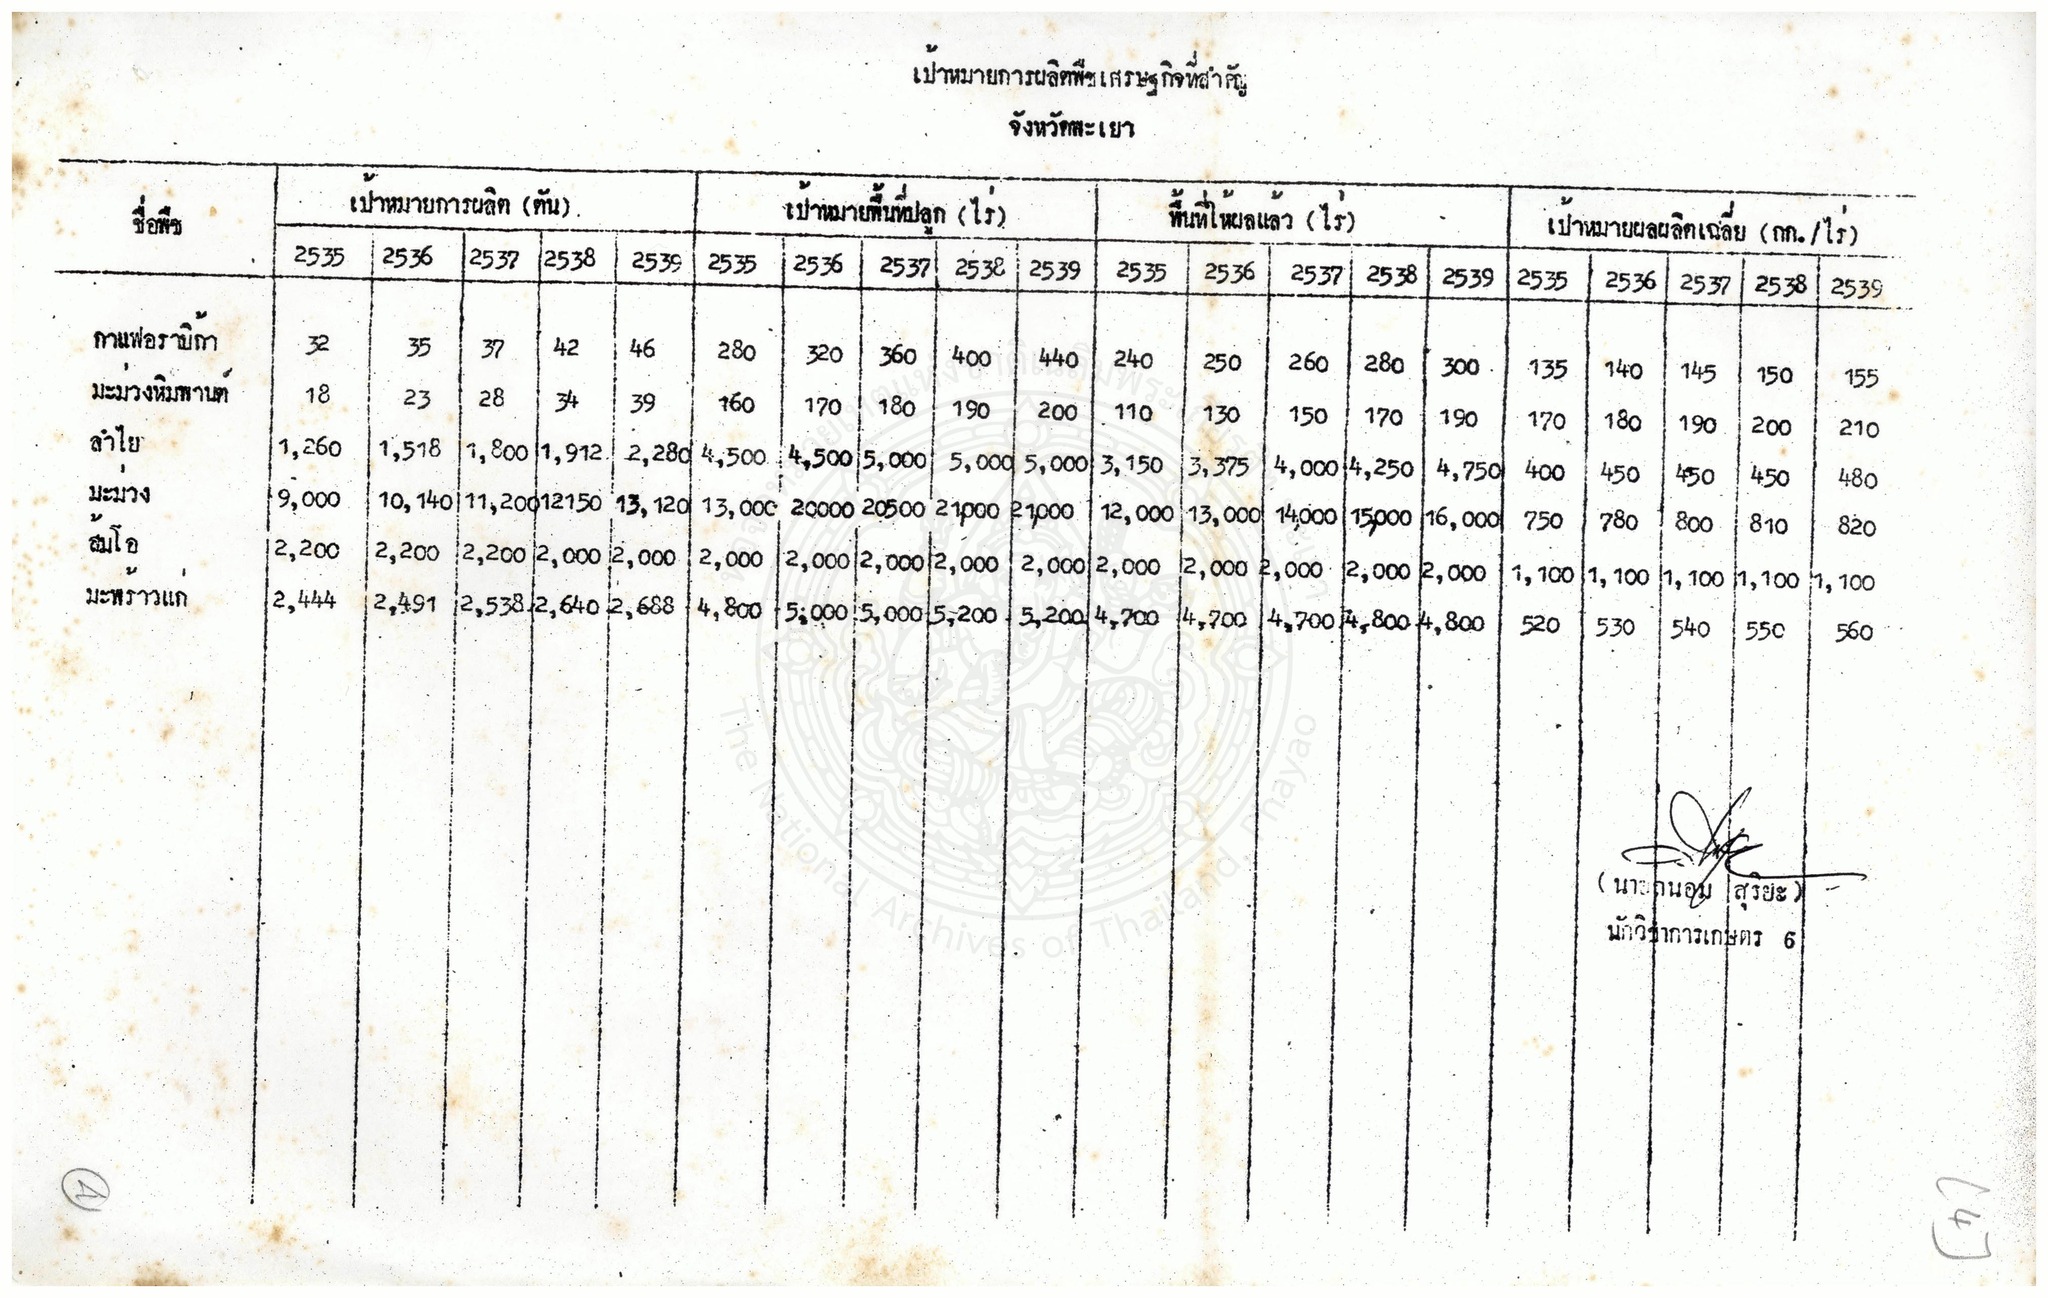 เป้าหมายการผลิตพืชเศรษฐกิจที่สำคัญ
จังหวัดพะเยา
ชื่อพืช เป้าหมายการผลิต (ตัน) เป้าหมายพื้นที่ปลูก (ไร่) พื้นที่ให้ผลแล้ว (ไร่) เป้าหมายผลผลิตเฉลี่ย (กก./ไร่)
2535 2536 2537 2538 2539 2535 2536 2537 2538 2539 2535 2536 2537 2538 2539 2535 2536 2537 2538 2539
กาแฟอราบิก้า 32 35 37 42 46 280 320 360 400 440 240 250 260 280 300 135 140 145 150 155
มะม่วงหิมพานต์ 18 23 28 34 39 160 170 180 190 200 110 130 150 170 190 170 180 190 200 210
ลำไย 1,260 1,518 1,800 1,912 2,280 4,500 4,500 5,000 5,000 5,000 3,150 3,375 4,000 4,250 4,750 400 450 450 450 480
มะม่วง 9,000 10,140 11,200 12150 13,120 13,000 20000 20500 21,000 21,000 12,000 13,000 14,000 15,000 16,000 750 780 800 810 820
ส้มโอ 2,200 2,200 2,200 2,000 2,000 2,000 2,000 2,000 2,000 2,000 2,000 2,000 2,000 2,000 2,000 1,100 1,100 1,100 1,100 1,100
มะพร้าวแก่ 2,444 2,491 2,538 2,640 2,688 4,800 5,000 5,000 5,200 5,200 4,700 4,700 4,700 4,800 4,800 520 530 540 550 560
(นายถนอม สุริยะ)
นักวิชาการเกษตร 6
The National Archives of Thailand, Phayao
(4)